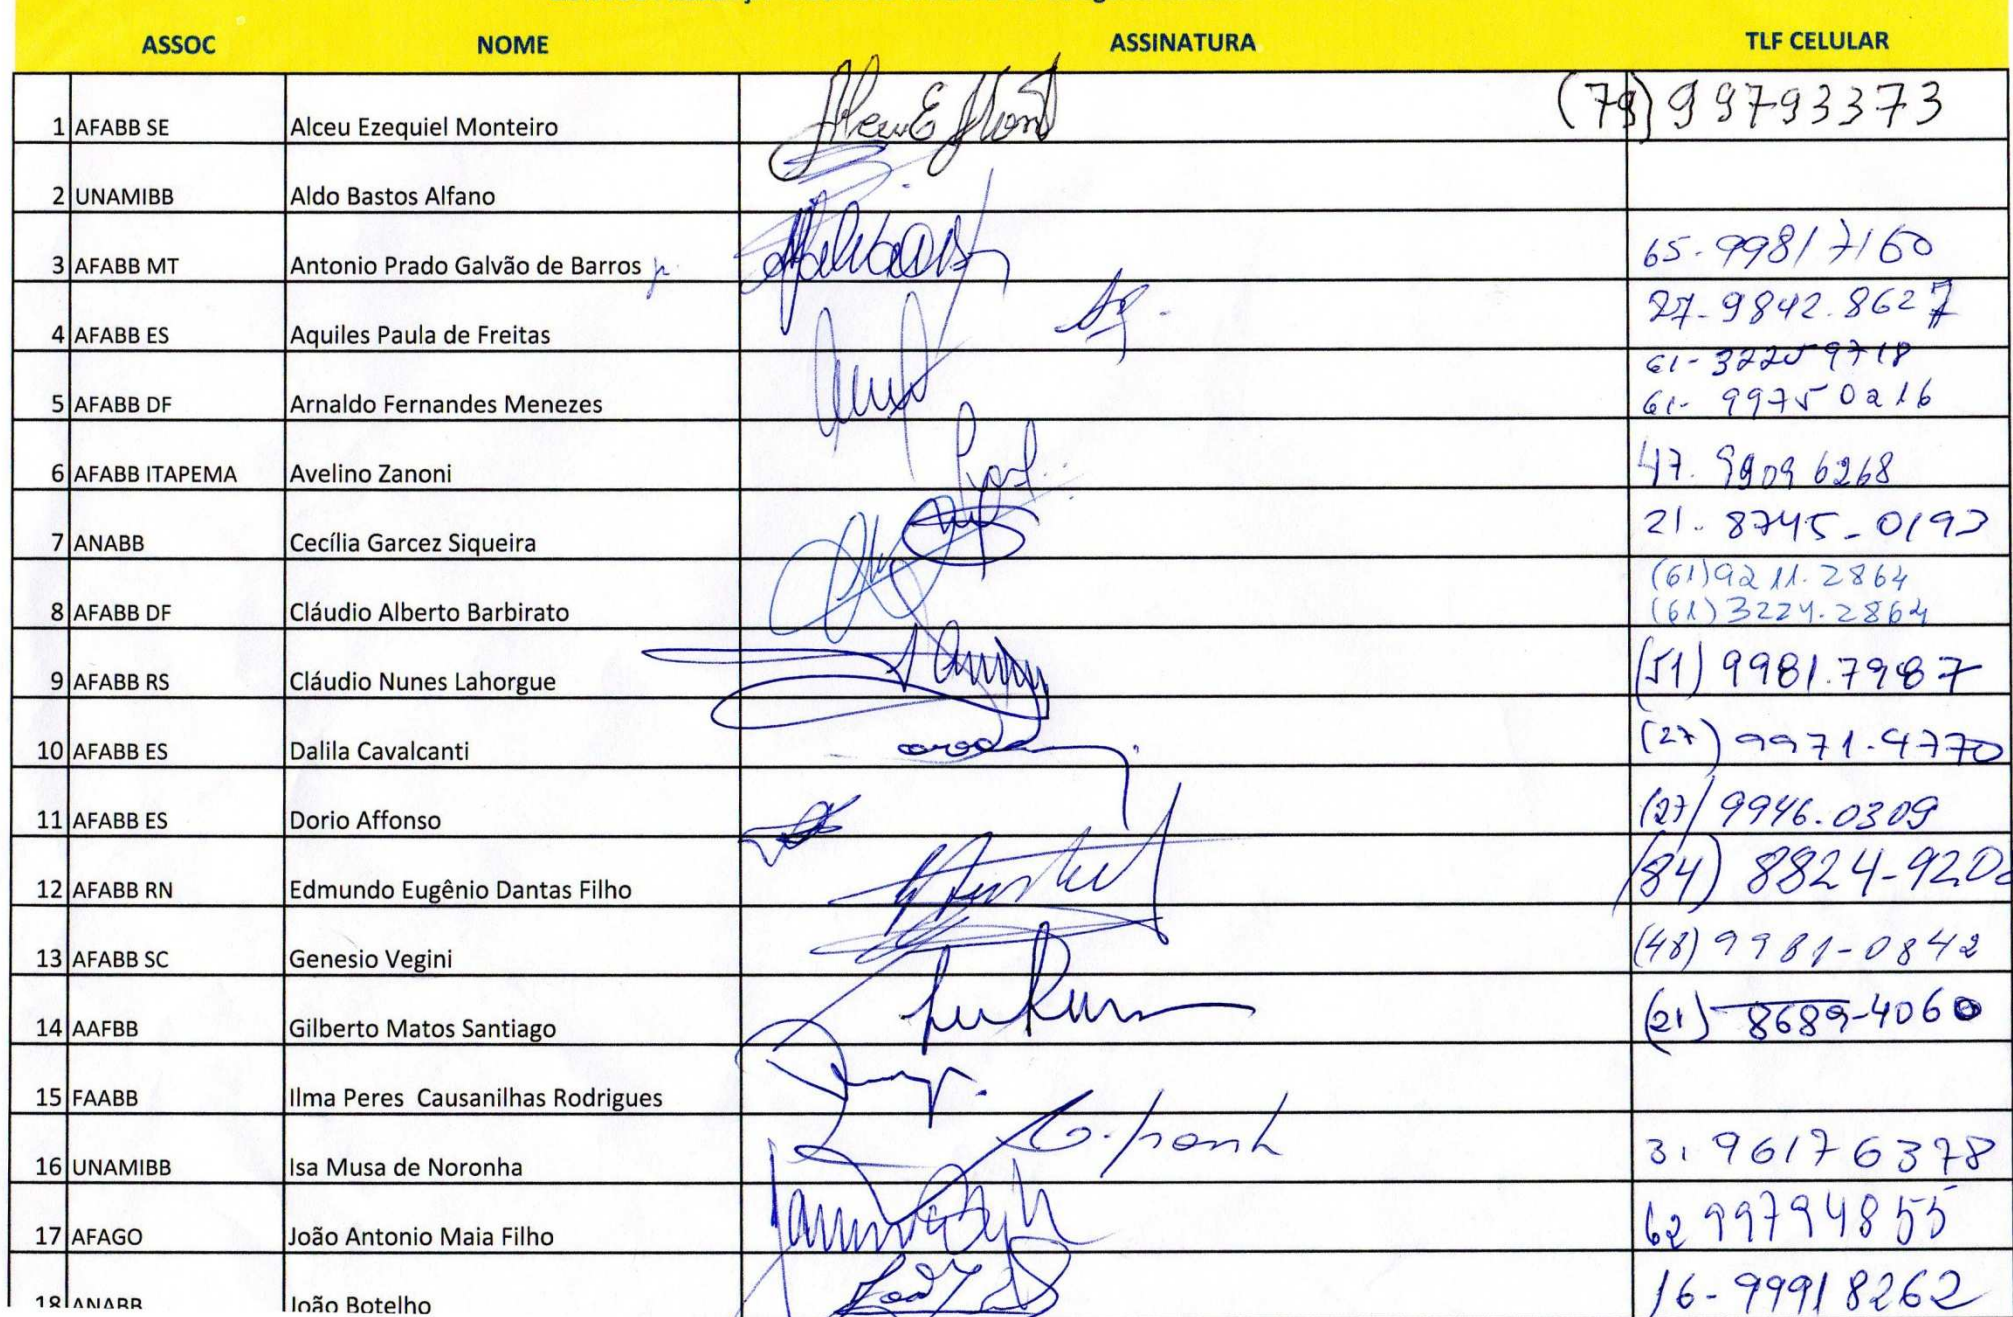 ASSOC NOME ASSINATURA TLF CELULAR
1 AFABB SE Alceu Ezequiel Monteiro (79) 99793373
2 UNAMIBB Aldo Bastos Alfano
3 AFABB MT Antonio Prado Galvão de Barros 65-99817160
4 AFABB ES Aquiles Paula de Freitas 27-9842.8627
61-32259718
5 AFABB DF Arnaldo Fernandes Menezes 61-99750216
6 AFABB ITAPEMA Avelino Zanoni 47. 99096268
7 ANABB Cecília Garcez Siqueira 21-8745-0193
(61)9211.2864
8 AFABB DF Cláudio Alberto Barbirato (61)3224.2864
9 AFABB RS Cláudio Nunes Lahorgue (51) 9981.7987
10 AFABB ES Dalila Cavalcanti (27) 9971-4770
11 AFABB ES Dorio Affonso (27) 9946.0309
12 AFABB RN Edmundo Eugênio Dantas Filho (84) 8824-920
13 AFABB SC Genesio Vegini (48) 9981-0842
14 AAFBB Gilberto Matos Santiago (21) 8689-4060
15 FAABB Ilma Peres Causanilhas Rodrigues
16 UNAMIBB Isa Musa de Noronha 31 96176378
17 AFAGO João Antonio Maia Filho 62 99794855
18 ANABB João Botelho 16-99918262